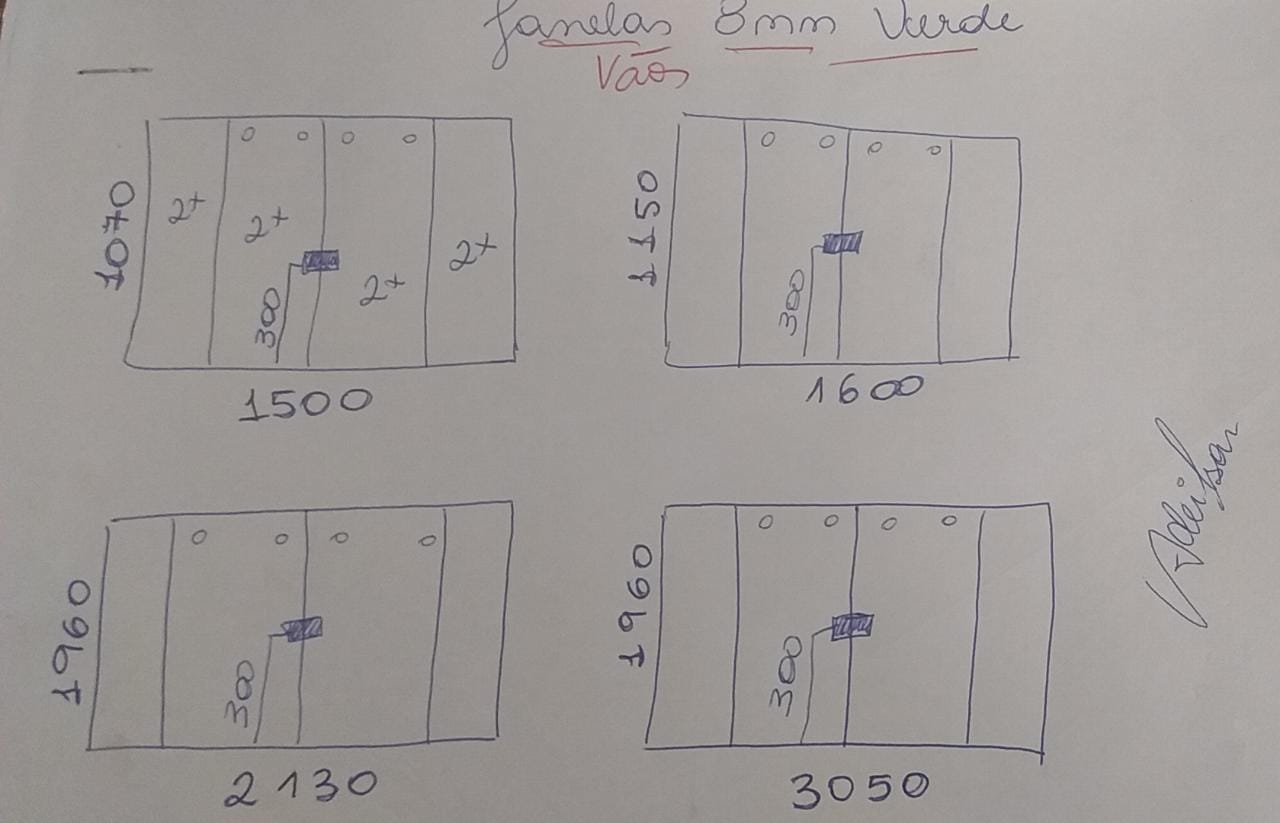 Janelas 8mm Verde
Vãos
1070
2+
2+
2+
2+
300
1500
1150
300
1600
1960
300
2130
1960
300
3050